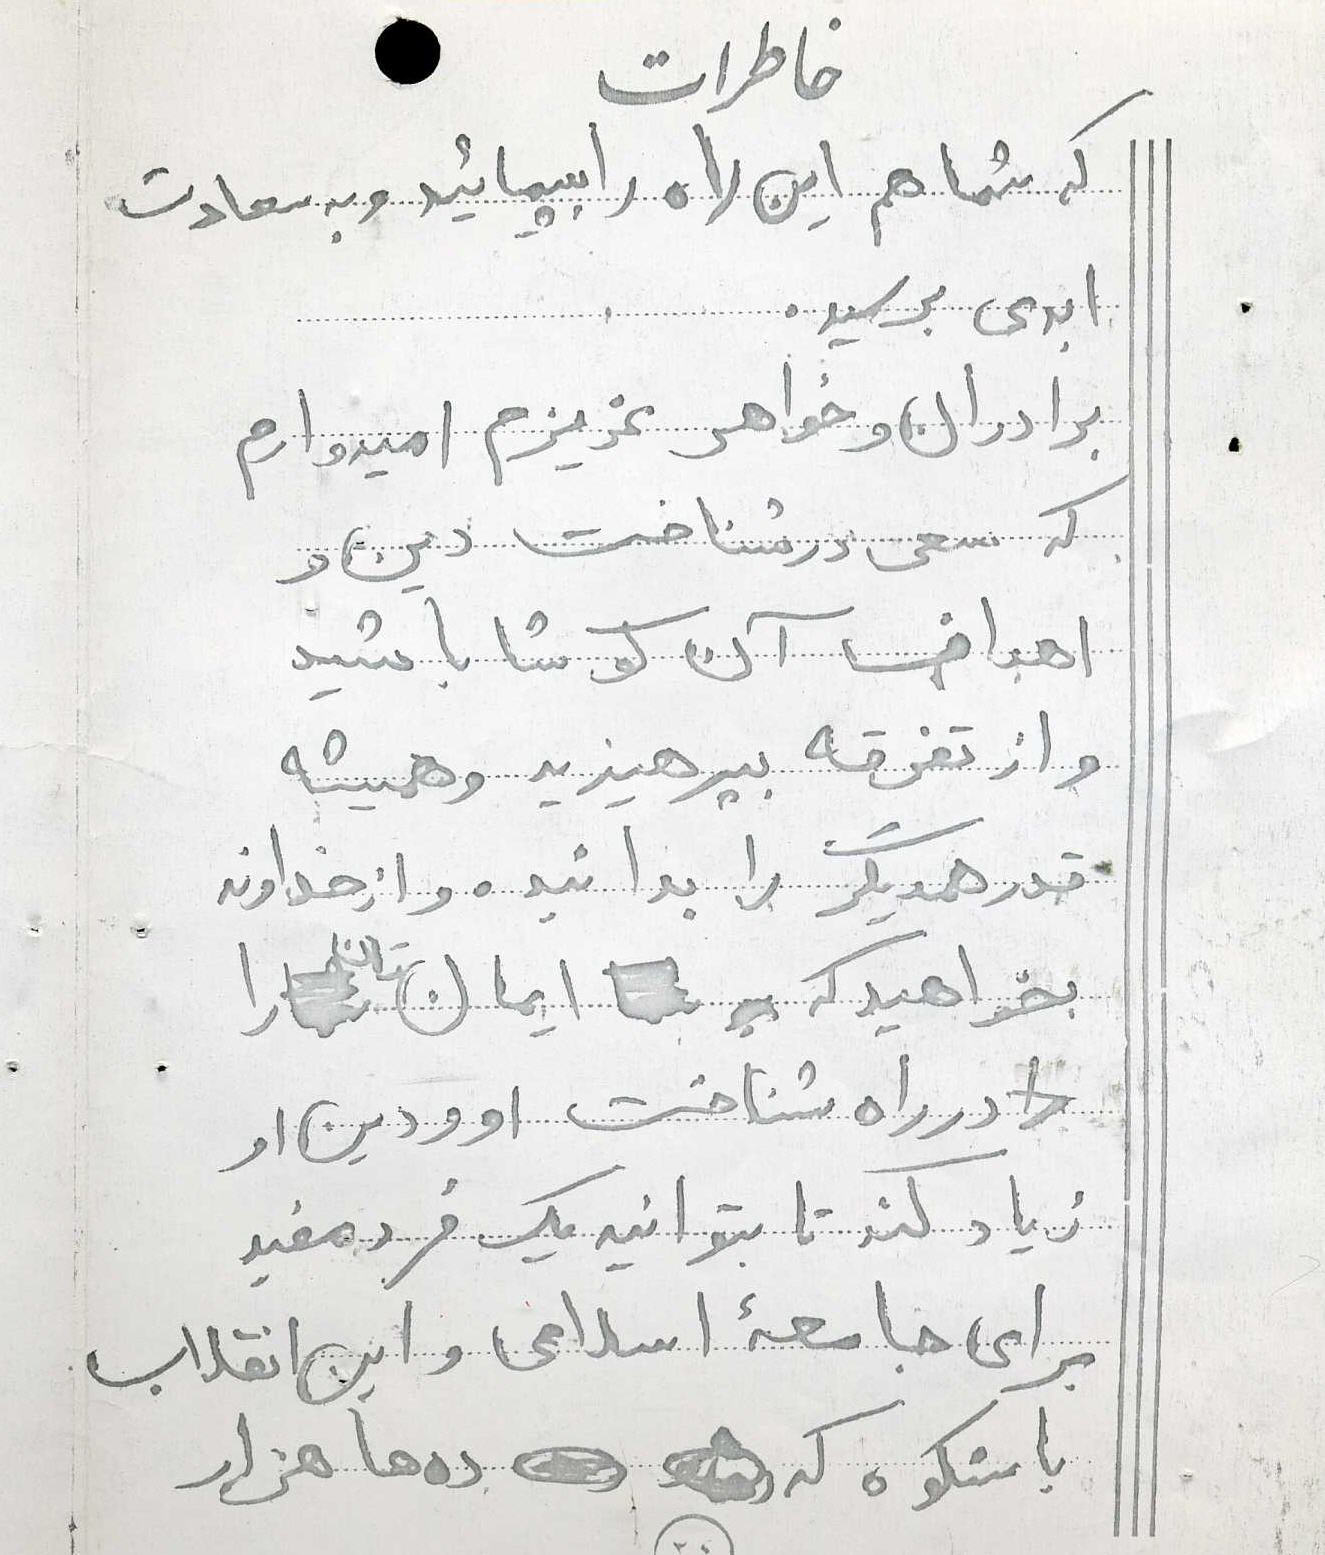 خاطرات
که شما هم این راه را بپیمائید و به سعادت
ابدی برسید.
برادران و خواهر عزیزم امیدوارم
که سعی در شناخت دین و
اهداف آن کوشا باشید
و از تفرقه بپرهیزید و همیشه
قدر همدیگر را بدانید. و از خداوند
بخواهید که ایمان تان را
در راه شناخت او و دین او
زیاد کند تا بتوانید یک فرد مفید
برای جامعهٔ اسلامی و این انقلاب
با شکوه که ده ها هزار
۲۰